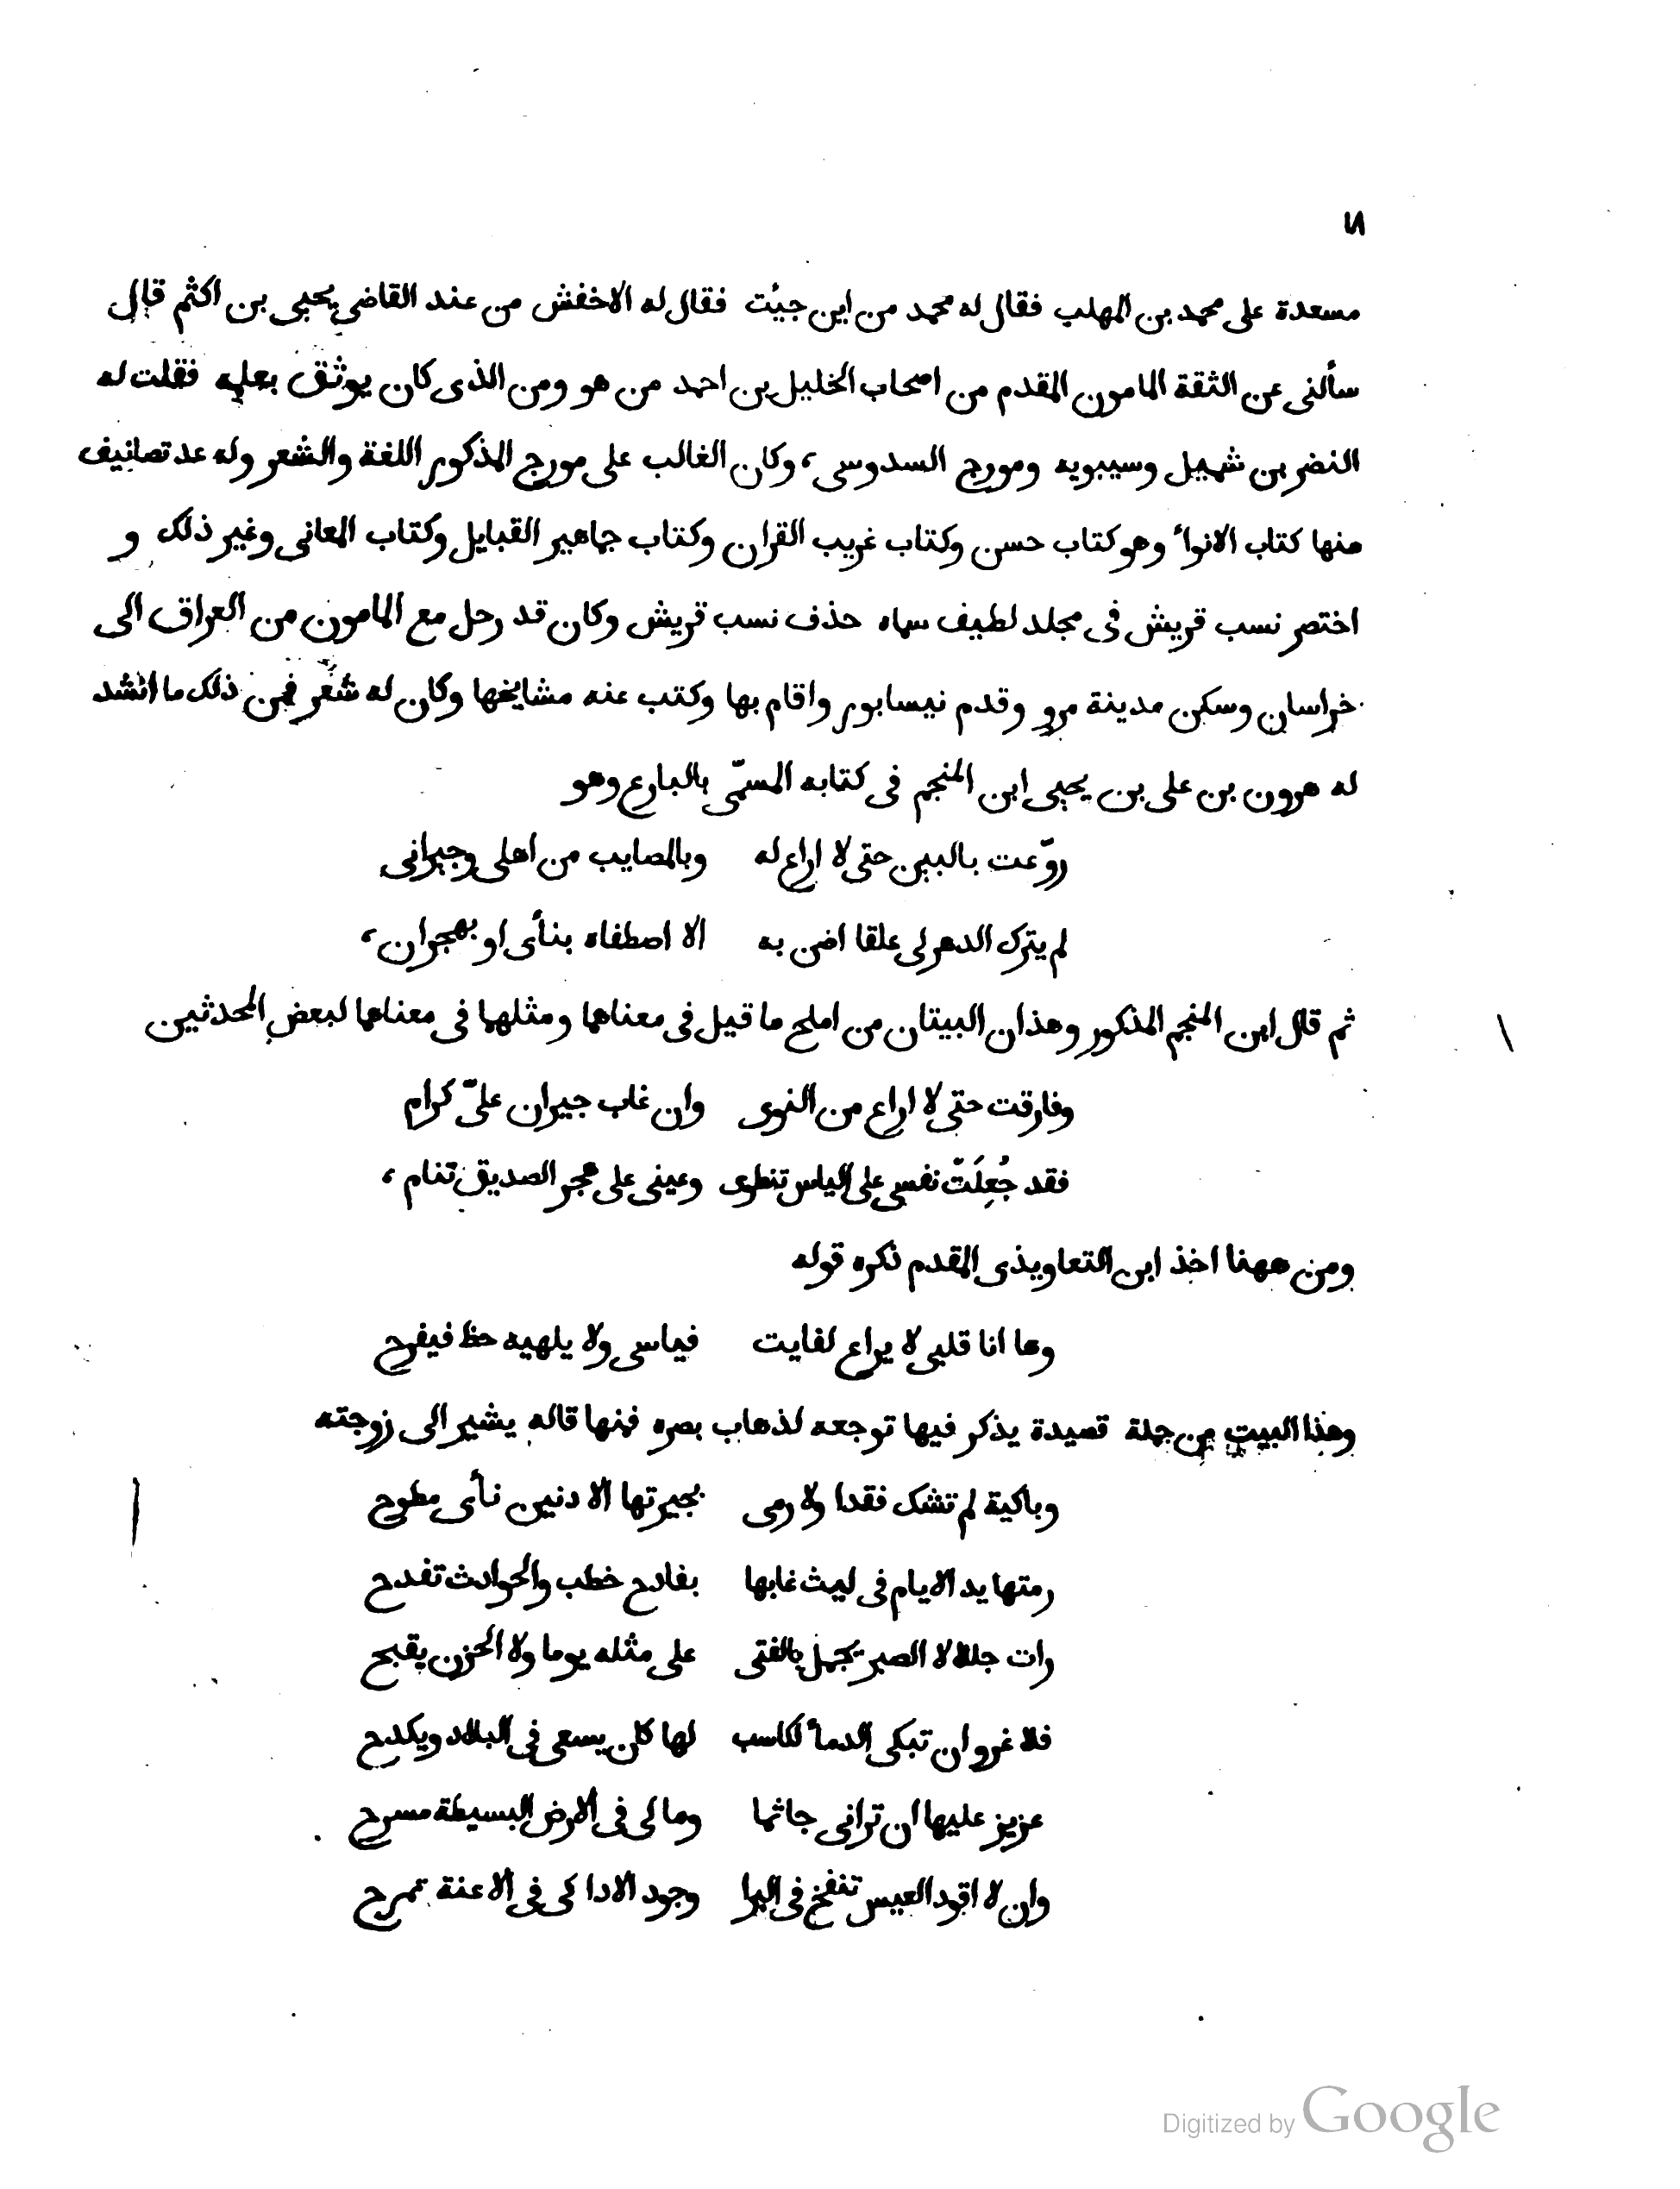 ٧٨
مسعدة على محمد بن المهلب فقال له محمد من اين جيئت فقال له الاخفش من عند القاضى يحيى بن اكثم قال
سألنى عن الثقة المامون المقدم من اصحاب الخليل بن احمد من هو ومن الذى كان يوثق بعلمه فقلت له
النضر بن شميل وسيبويه ومورج السدوسى، وكان الغالب على مورج المذكور اللغة والشعر وله عد تصانيف
منها كتاب الانوأ وهو كتاب حسن وكتاب غريب القران وكتاب جماهير القبايل وكتاب المعانى وغير ذلك و
اختصر نسب قريش فى مجلد لطيف سماه حذف نسب قريش وكان قد رحل مع المامون من العراق الى
خراسان وسكن مدينة مرو وقدم نيسابور واقام بها وكتب عنه مشايخها وكان له شعر فمن ذلك ما انشد
له هرون بن على بن يحيى ابن المنجم فى كتابه المسمّى بالبارع وهو
روّعت بالبين حتى لا اراع له وبالمصايب من اهلى وجيرانى
لم يترك الدهر لى علقا اضن به الا اصطفاه بنأى او بهجران،
ثم قال ابن المنجم المذكور وهذان البيتان من املح ما قيل فى معناها ومثلهما فى معناها لبعض المحدثين
وفارقت حتى لا اراع من النوى وان غاب جيران علىّ كرام
فقد جُعِلَتْ نفسى على الياس تنطوى وعينى على هجر الصديق تنام،
ومن ههنا اخذ ابن التعاويذى المقدم ذكره قوله
وها انا قلبى لا يراع لفايت فياسى ولا يلهيه حظ فيفرح
وهذا البيت من جملة قصيدة يذكر فيها توجعه لذهاب بصره فمنها قاله يشير الى زوجته
وباكية لم تشك فقدا ولا رمى بجيرتها الادنين نأى مطوح
رمتها يد الايام فى ليث غابها بفادح خطب والحوادث تفدح
رات جللا لا الصبر يجمل بالفتى على مثله يوما ولا الحزن يقبح
فلا غرو ان تبكى الدمأ لكاسب لها كان يسعى فى البلاد ويكدح
عزيز عليها ان ترانى جاثما وما لى فى الارض البسيطة مسرح
وان لا اقود العيس تنفخ فى البرا وجود الاداكى فى الاعنة تمرح
Digitized by Google